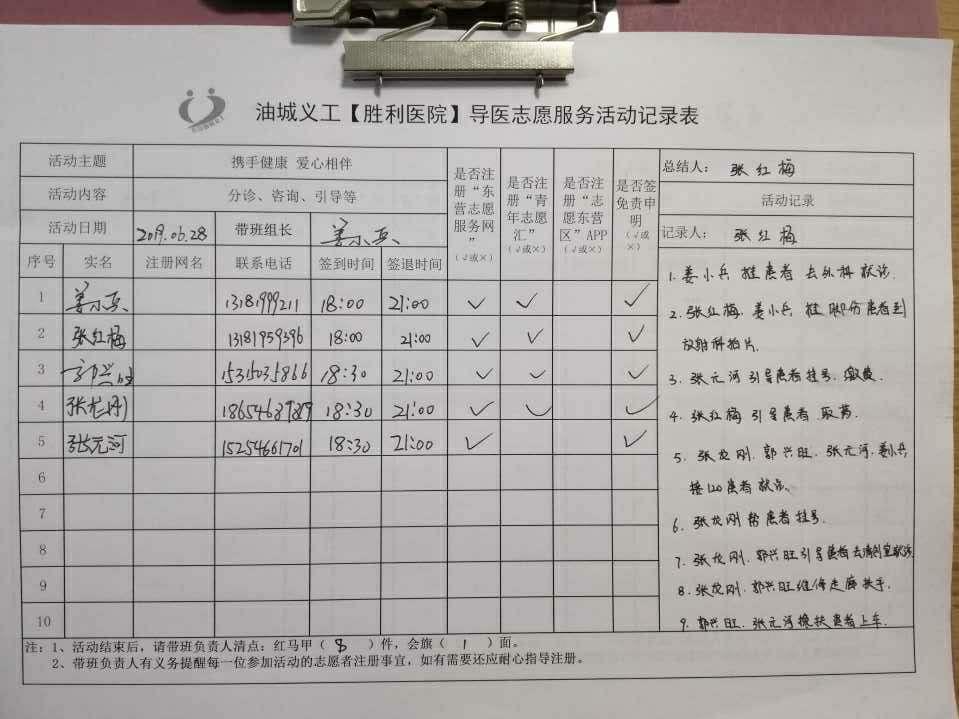 油城义工【胜利医院】导医志愿服务活动记录表
活动主题 携手健康 爱心相伴 是否注册“东营志愿服务网”(√或×) 是否注册“青年志愿汇”(√或×) 是否注册“志愿东营区”APP(√或×) 是否签免责申明(√或×) 总结人: 张红梅
活动内容 分诊、咨询、引导等 活动记录
活动日期 2019.06.28 带班组长 姜小兵 记录人: 张红梅
序号 实名 注册网名 联系电话 签到时间 签退时间
1 姜小兵 13181999211 18:00 21:00 ✓ ✓ ✓
2 张红梅 13181959396 18:00 21:00 ✓ ✓ ✓
3 郭兴旺 15315035866 18:30 21:00 ✓ ✓ ✓
4 张龙刚 18:30 21:00 ✓ ✓ ✓
5 张元河 15254661701 18:30 21:00 ✓ ✓
6
7
8
9
10
1. 姜小兵 推患者 去外科就诊.
2. 张红梅. 姜小兵 推 脚伤患者到
放射科拍片.
3. 张元河引导患者挂号. 缴费.
4. 张红梅 引导患者 取药.
5. 张龙刚. 郭兴旺. 张元河. 姜小兵
接120患者 就诊.
6. 张龙刚帮患者挂号.
7. 张龙刚. 郭兴旺引导患者去清创室就诊
8. 张龙刚. 郭兴旺维修走廊扶手.
9. 郭兴旺. 张元河搀扶患者上车.
注:1、活动结束后,请带班负责人清点:红马甲( 8 )件,会旗( 1 )面。
2、带班负责人有义务提醒每一位参加活动的志愿者注册事宜,如有需要还应耐心指导注册。